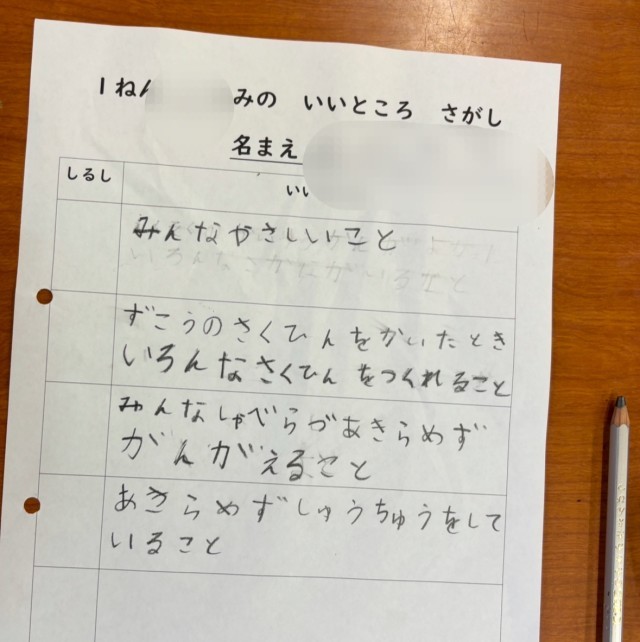 1ねん みの いいところ さがし
名まえ
しるし いい
みんなやさしいこと
ずこうのさくひんをかいたとき
いろんなさくひんをつくれること
みんなしゃべらづあきらめず
がんがえること
あきらめずしゅうちゅうをして
いること